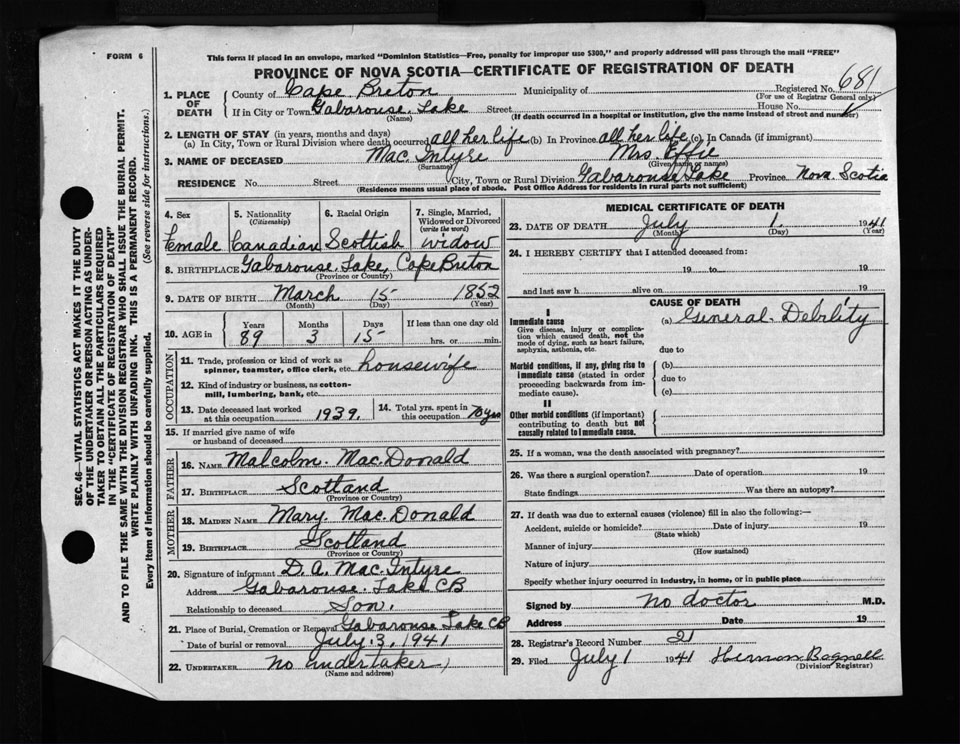 FORM 6
This form if placed in an envelope, marked "Dominion Statistics—Free, penalty for improper use $300," and properly addressed will pass through the mail "FREE"
PROVINCE OF NOVA SCOTIA—CERTIFICATE OF REGISTRATION OF DEATH
Registered No. 681
(For use of Registrar General only)
1. PLACE OF DEATH
County of Cape Breton Municipality of
If in City or Town Gabarouse Lake Street House No.
(Name) (If death occurred in a hospital or institution, give the name instead of street and number)
2. LENGTH OF STAY (in years, months and days)
(a) In City, Town or Rural Division where death occurred all her life (b) In Province all her life (c) In Canada (if immigrant)
3. NAME OF DECEASED Mac. Intyre Mrs. Effie
(Surname) (Given name or names)
RESIDENCE No. Street City, Town or Rural Division Gabarouse Lake Province Nova Scotia
(Residence means usual place of abode. Post Office Address for residents in rural parts not sufficient)
4. Sex female
5. Nationality (Citizenship) Canadian
6. Racial Origin Scottish
7. Single, Married, Widowed or Divorced (write the word) widow
8. BIRTHPLACE Gabarouse Lake, Cape Breton
(Province or Country)
9. DATE OF BIRTH March 15 1852
(Month) (Day) (Year)
10. AGE in Years 89 Months 3 Days 15 If less than one day old hrs. or min.
OCCUPATION
11. Trade, profession or kind of work as spinner, teamster, office clerk, etc. housewife
12. Kind of industry or business, as cotton-mill, lumbering, bank, etc.
13. Date deceased last worked at this occupation 1939.
14. Total yrs. spent in this occupation 70 yrs
15. If married give name of wife or husband of deceased
FATHER
16. NAME Malcolm. MacDonald
17. BIRTHPLACE Scotland
(Province or Country)
MOTHER
18. MAIDEN NAME Mary MacDonald
19. BIRTHPLACE Scotland
(Province or Country)
20. Signature of informant D. A. MacIntyre
Address Gabarouse Lake CB
Relationship to deceased Son.
21. Place of Burial, Cremation or Removal Gabarouse Lake CB
Date of burial or removal July 3, 1941
22. UNDERTAKER no undertaker
(Name and address)
MEDICAL CERTIFICATE OF DEATH
23. DATE OF DEATH July 1 1941
(Month) (Day) (Year)
24. I HEREBY CERTIFY that I attended deceased from:
19 to 19
and last saw h alive on 19
CAUSE OF DEATH
I
Immediate cause (a) General Debility
Give disease, injury or complication which caused death, not the mode of dying, such as heart failure, asphyxia, asthenia, etc.
due to
Morbid conditions, if any, giving rise to immediate cause (stated in order proceeding backwards from immediate cause).
(b)
due to
(c)
II
Other morbid conditions (if important) contributing to death but not causally related to immediate cause.
25. If a woman, was the death associated with pregnancy?
26. Was there a surgical operation? Date of operation 19
State findings Was there an autopsy?
27. If death was due to external causes (violence) fill in also the following:—
Accident, suicide or homicide? Date of injury 19
(State which)
Manner of injury
(How sustained)
Nature of injury
Specify whether injury occurred in industry, in home, or in public place
Signed by no doctor M.D.
Address Date 19
28. Registrar's Record Number 21
29. Filed July 1 1941 Hernon Bagnell
(Division Registrar)
SEC. 46—VITAL STATISTICS ACT MAKES IT THE DUTY
OF THE UNDERTAKER OR PERSON ACTING AS UNDER-
TAKER TO OBTAIN ALL THE PARTICULARS REQUIRED
IN THE "CERTIFICATE OF REGISTRATION OF DEATH"
AND TO FILE THE SAME WITH THE DIVISION REGISTRAR WHO SHALL ISSUE THE BURIAL PERMIT.
WRITE PLAINLY WITH UNFADING INK. THIS IS A PERMANENT RECORD.
Every item of information should be carefully supplied. (See reverse side for instructions.)